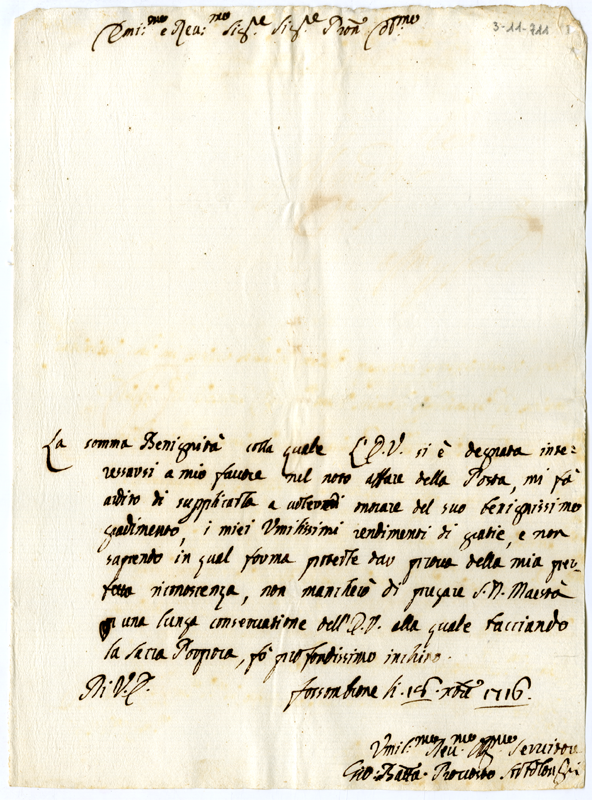 Emi:mo e Reu:mo Sig:re Sig:re Pron: Col:mo
3-11-711
La somma Benignità colla quale l'E.V. si è degnata inte=
ressarsi a mio favore nel noto affare della Posta, mi fà
ardito di supplicarla a volere onorare del suo benignissimo
gradimento, i miei Umilissimi rendimenti di gratie, e non
sapendo in qual forma poterle dar prova della mia per=
fetta riconoscenza, non mancherò di pregare S.D. Maestà
p una lunga conservatione dell'E.V. alla quale bacciando
la Sacra Porpora, fò profondissimo inchino.
Di V.E. Fossombrone li 1716.
Umil:mo Reu:mo Servitore
Gio: Batta